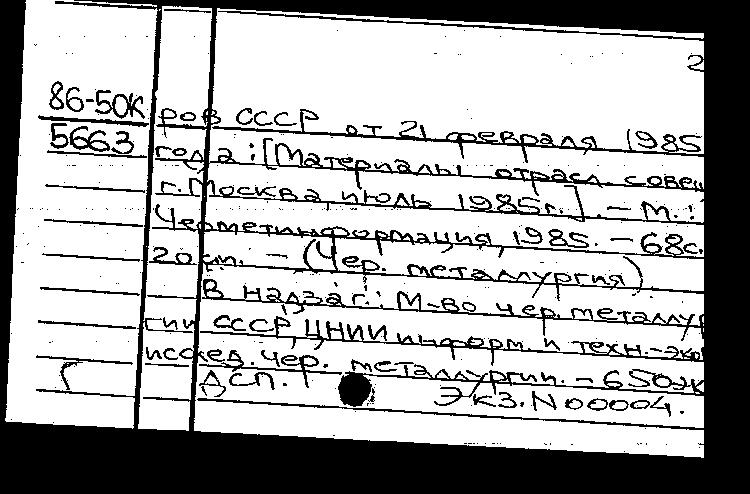 2
86-50К ров СССР от 21 февраля 1985
5663 года : [Материалы отрасл. совещ
г. Москва, июль 1985г.]. – М. :
Черметинформация, 1985. – 68с.
20 см. – (Чер. металлургия)
В надзаг.: М-во чер. металлур
гии СССР, ЦНИИ информ. и техн.-эко
исслед. чер. металлургии. – 650эк
ДСП.
Экз. N 00004.